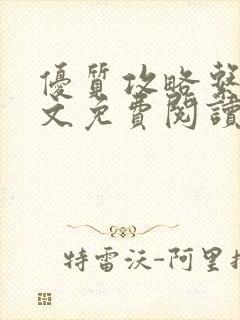 優質攻略
文免費閱讀
特雷沃-阿里